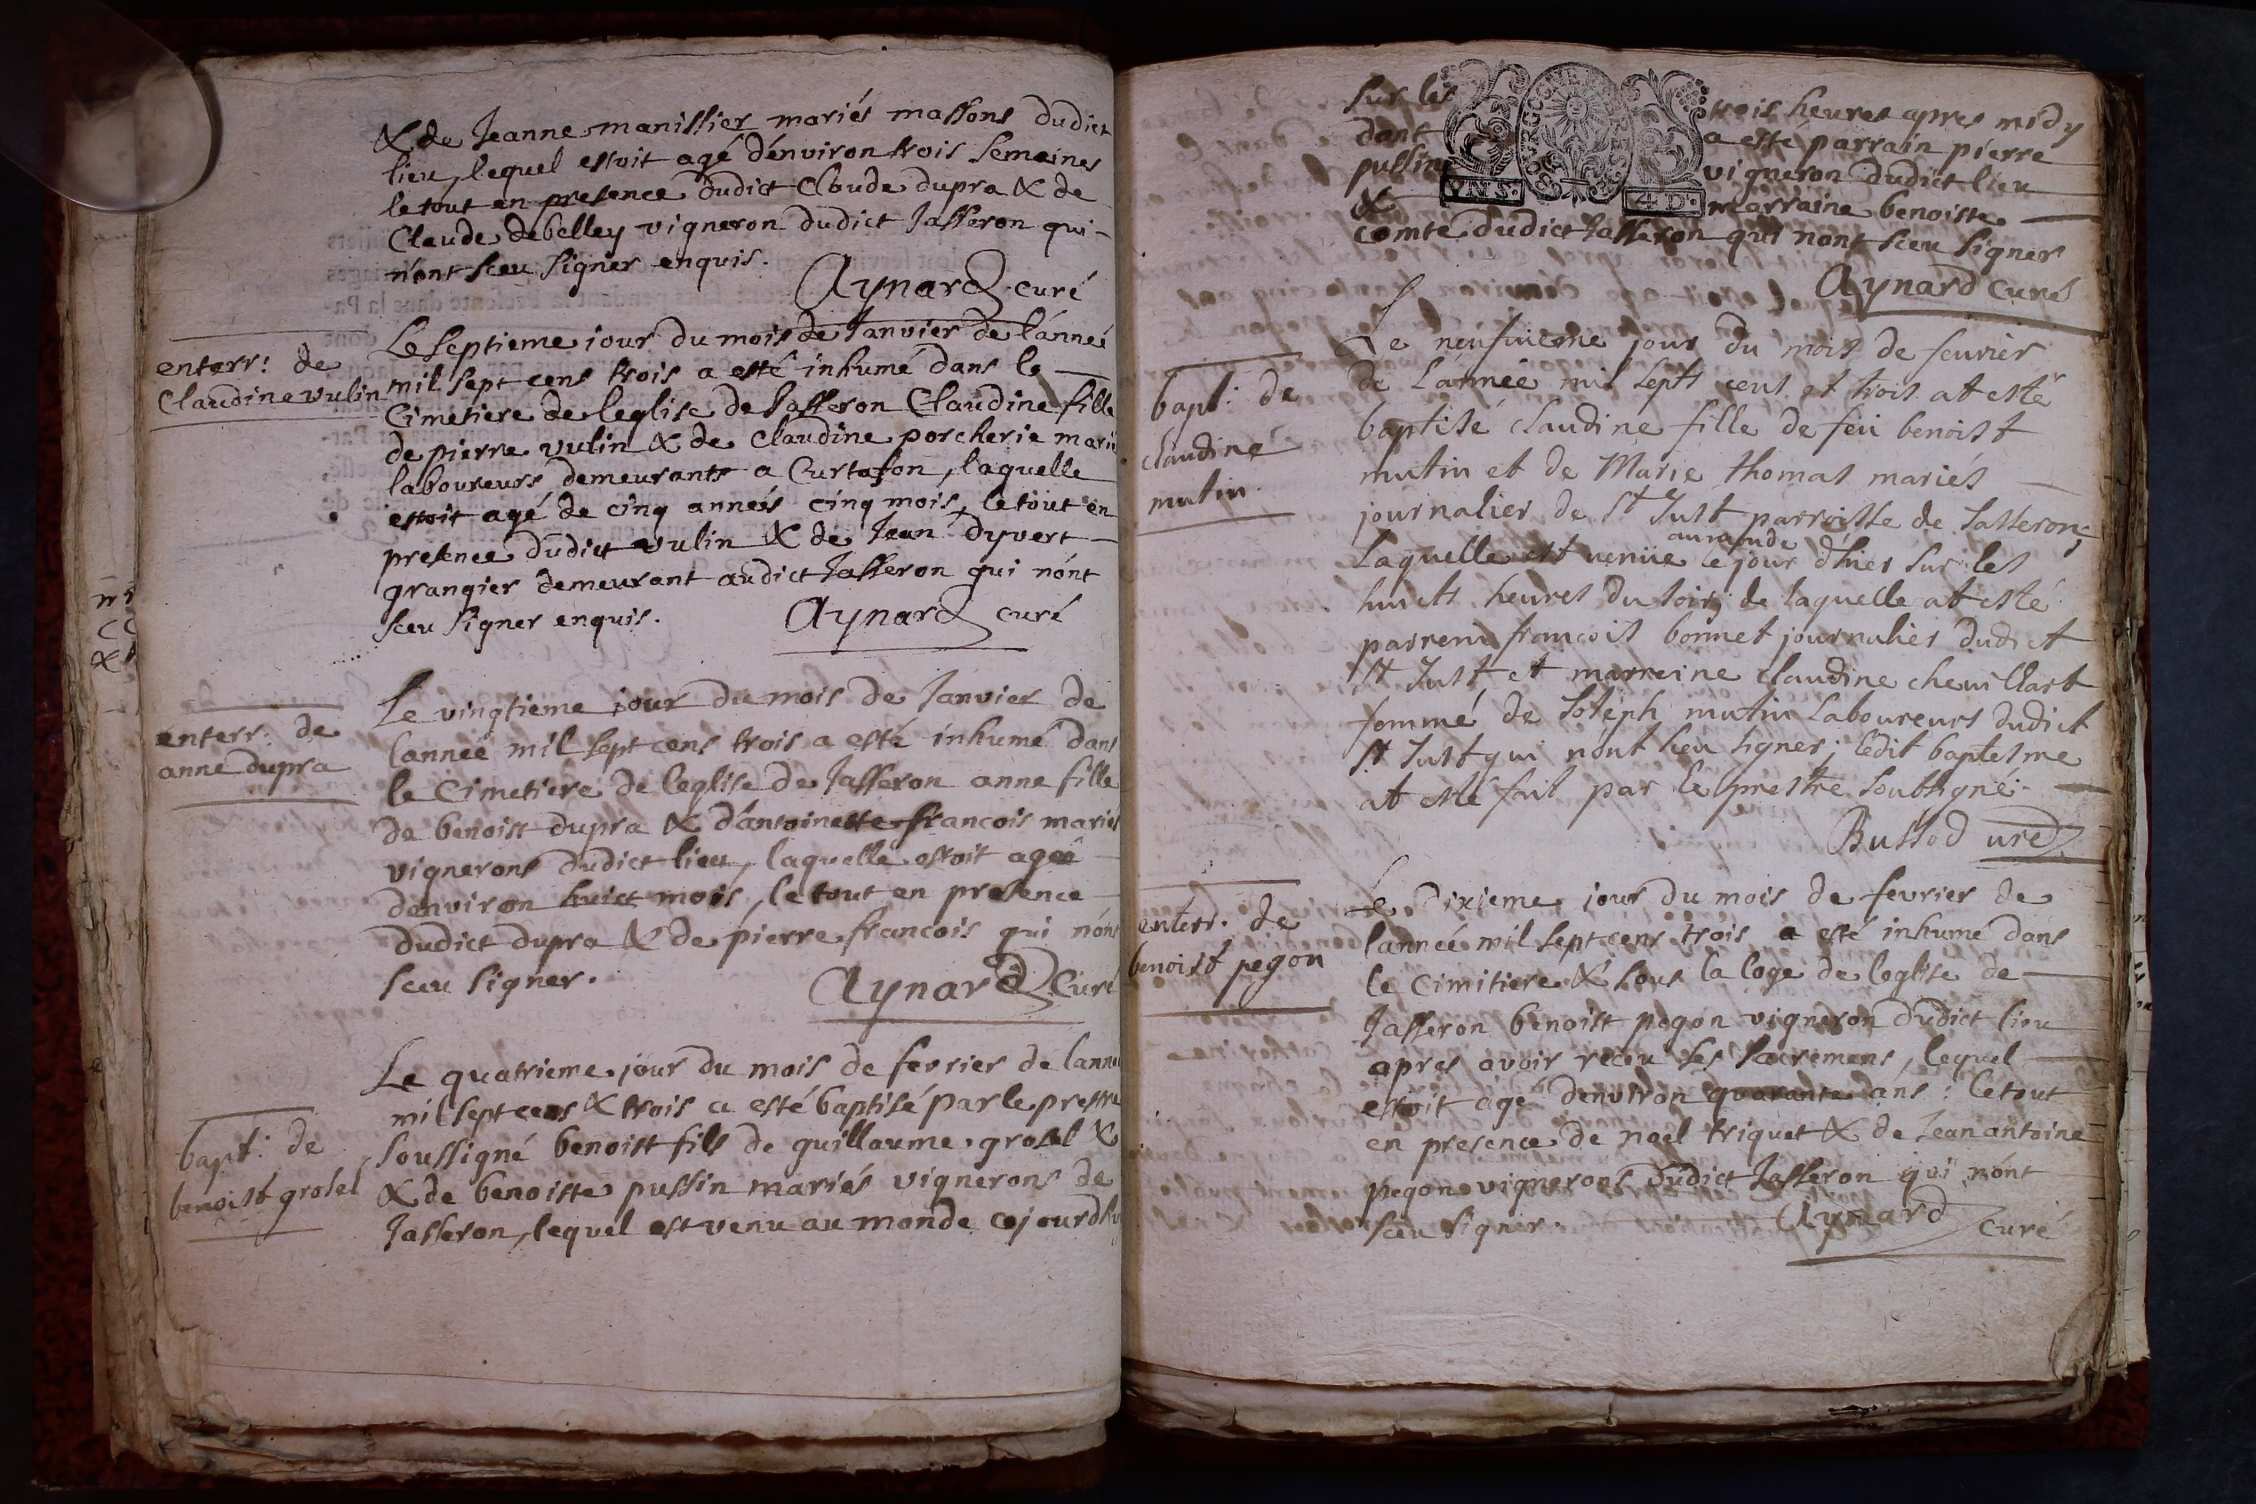 & de Jeanne manissier mariés massons dudict
lieu, lequel estoit agé d'environ trois semaines
le tout en presence dudict Claude dupra & de
Claude debelley vigneron dudict Jasseron qui
n'ont sceu signer enquis.
Aynard curé
enterr: de
Claudine vulin
Le septieme jour du mois de Janvier de l'anneé
mil sept cens trois a esté inhumé dans le
Cimetiere de leglise de Jasseron Claudine fille
de pierre vulin & de Claudine porcherie mariés
laboureurs demeurants a Curtafon, laquelle
estoit agé de cinq anneés cinq mois, le tout en
presence dudict vulin & de Jean dyvert
grangier demeurant audict Jasseron qui n'ont
sceu signer enquis.
Aynard curé
enterr: de
anne dupra
Le vingtieme jour du mois de Janvier de
l'anneé mil sept cens trois a esté inhumé dans
le Cimetiere de leglise de Jasseron anne fille
de benoist dupra & d'antoinette francois mariés
vignerons dudict lieu, laquelle estoit ageé
d'environ huict mois, le tout en presence
dudict dupra & de pierre francois qui n'ont
sceu signer.
Aynard Curé
bapt: de
benoist grosel
Le quatrieme jour du mois de fevrier de lanneé
mil sept cens & trois a esté baptisé par le prestre
soussigné benoist fils de guillaume grosel &
& de benoiste pussin mariés vignerons de
Jasseron, lequel est venu au monde cejourdhuy
sur les trois heures apres midy
dont a esté parrain pierre
pussin vigneron dudict lieu
& marraine benoiste
comte dudict Jasseron qui n'ont sceu signer
BOURGOGNE
4 D.
Aynard curé
bapt: de
claudine
mutin.
Le neufuieme jour du mois de feurier
de L'année mil sept cens et trois at esté
baptisé claudine fille de feu benoist
mutin et de Marie thomas mariés
journalier de St Just parroisse de Jasseron;
au monde
laquelle est venüe le jour d'hier sur les
huicts heures du soir; de laquelle at esté
parrein francois bonnet journalier dudict
St Just et marreine claudine cheuillart
fommé de Joseph mutin Laboureurs dudict
St Just qui n'ont sceu signer; ledit baptesme
at esté fait par le prestre soubsigné.
enterr. de
benoist pegon
Le dixieme jour du mois de fevrier de
lanneé mil sept cens trois a esté inhumé dans
le Cimitiere & sous la loge de leglise de
Jasseron benoist pegon vigneron dudict lieu
apres avoir receu ses sacremens, lequel
estoit agé d'environ quarante ans: le tout
en presence de noel triquet & de Jean antoine
pegon vignerons dudict Jasseron qui n'ont
sceu signer.
Aynard curé